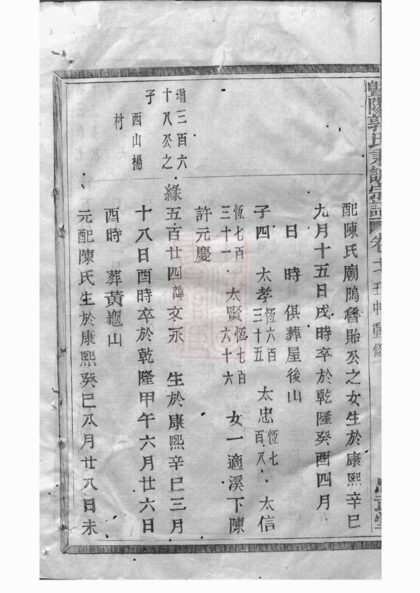 暨陽郭氏東設宗譜 卷
配陳氏廟隝脩貽公之女生於康熙辛巳
九月十五日戌時卒於乾隆癸酉四月
日 時 俱葬屋後山
子四 太孝恆六百三十五 太忠恆七百八 太信
恆七百三十一 太賢恆七百六十六 女一適溪下陳
許元慶
增三百六
十八公之
子
西山楊
村
緣五百廿四諱文永 生於康熙辛巳三月
十八日酉時卒於乾隆甲午六月廿六日
酉時 葬黃龜山
元配陳氏生於康熙癸巳八月廿八日未